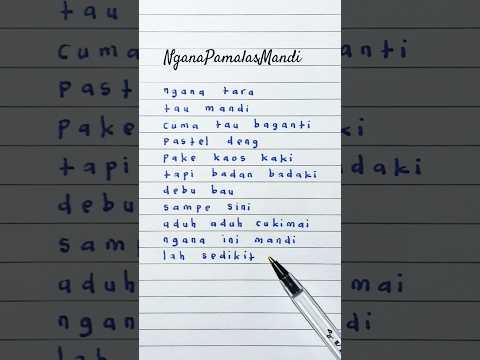 NganaPamalasMandi
ngana tara
tau mandi
cuma tau baganti
pastel deng
pake kaos kaki
tapi badan badaki
debu bau
sampe sini
aduh aduh cukimai
ngana ini mandi
lah sedikit